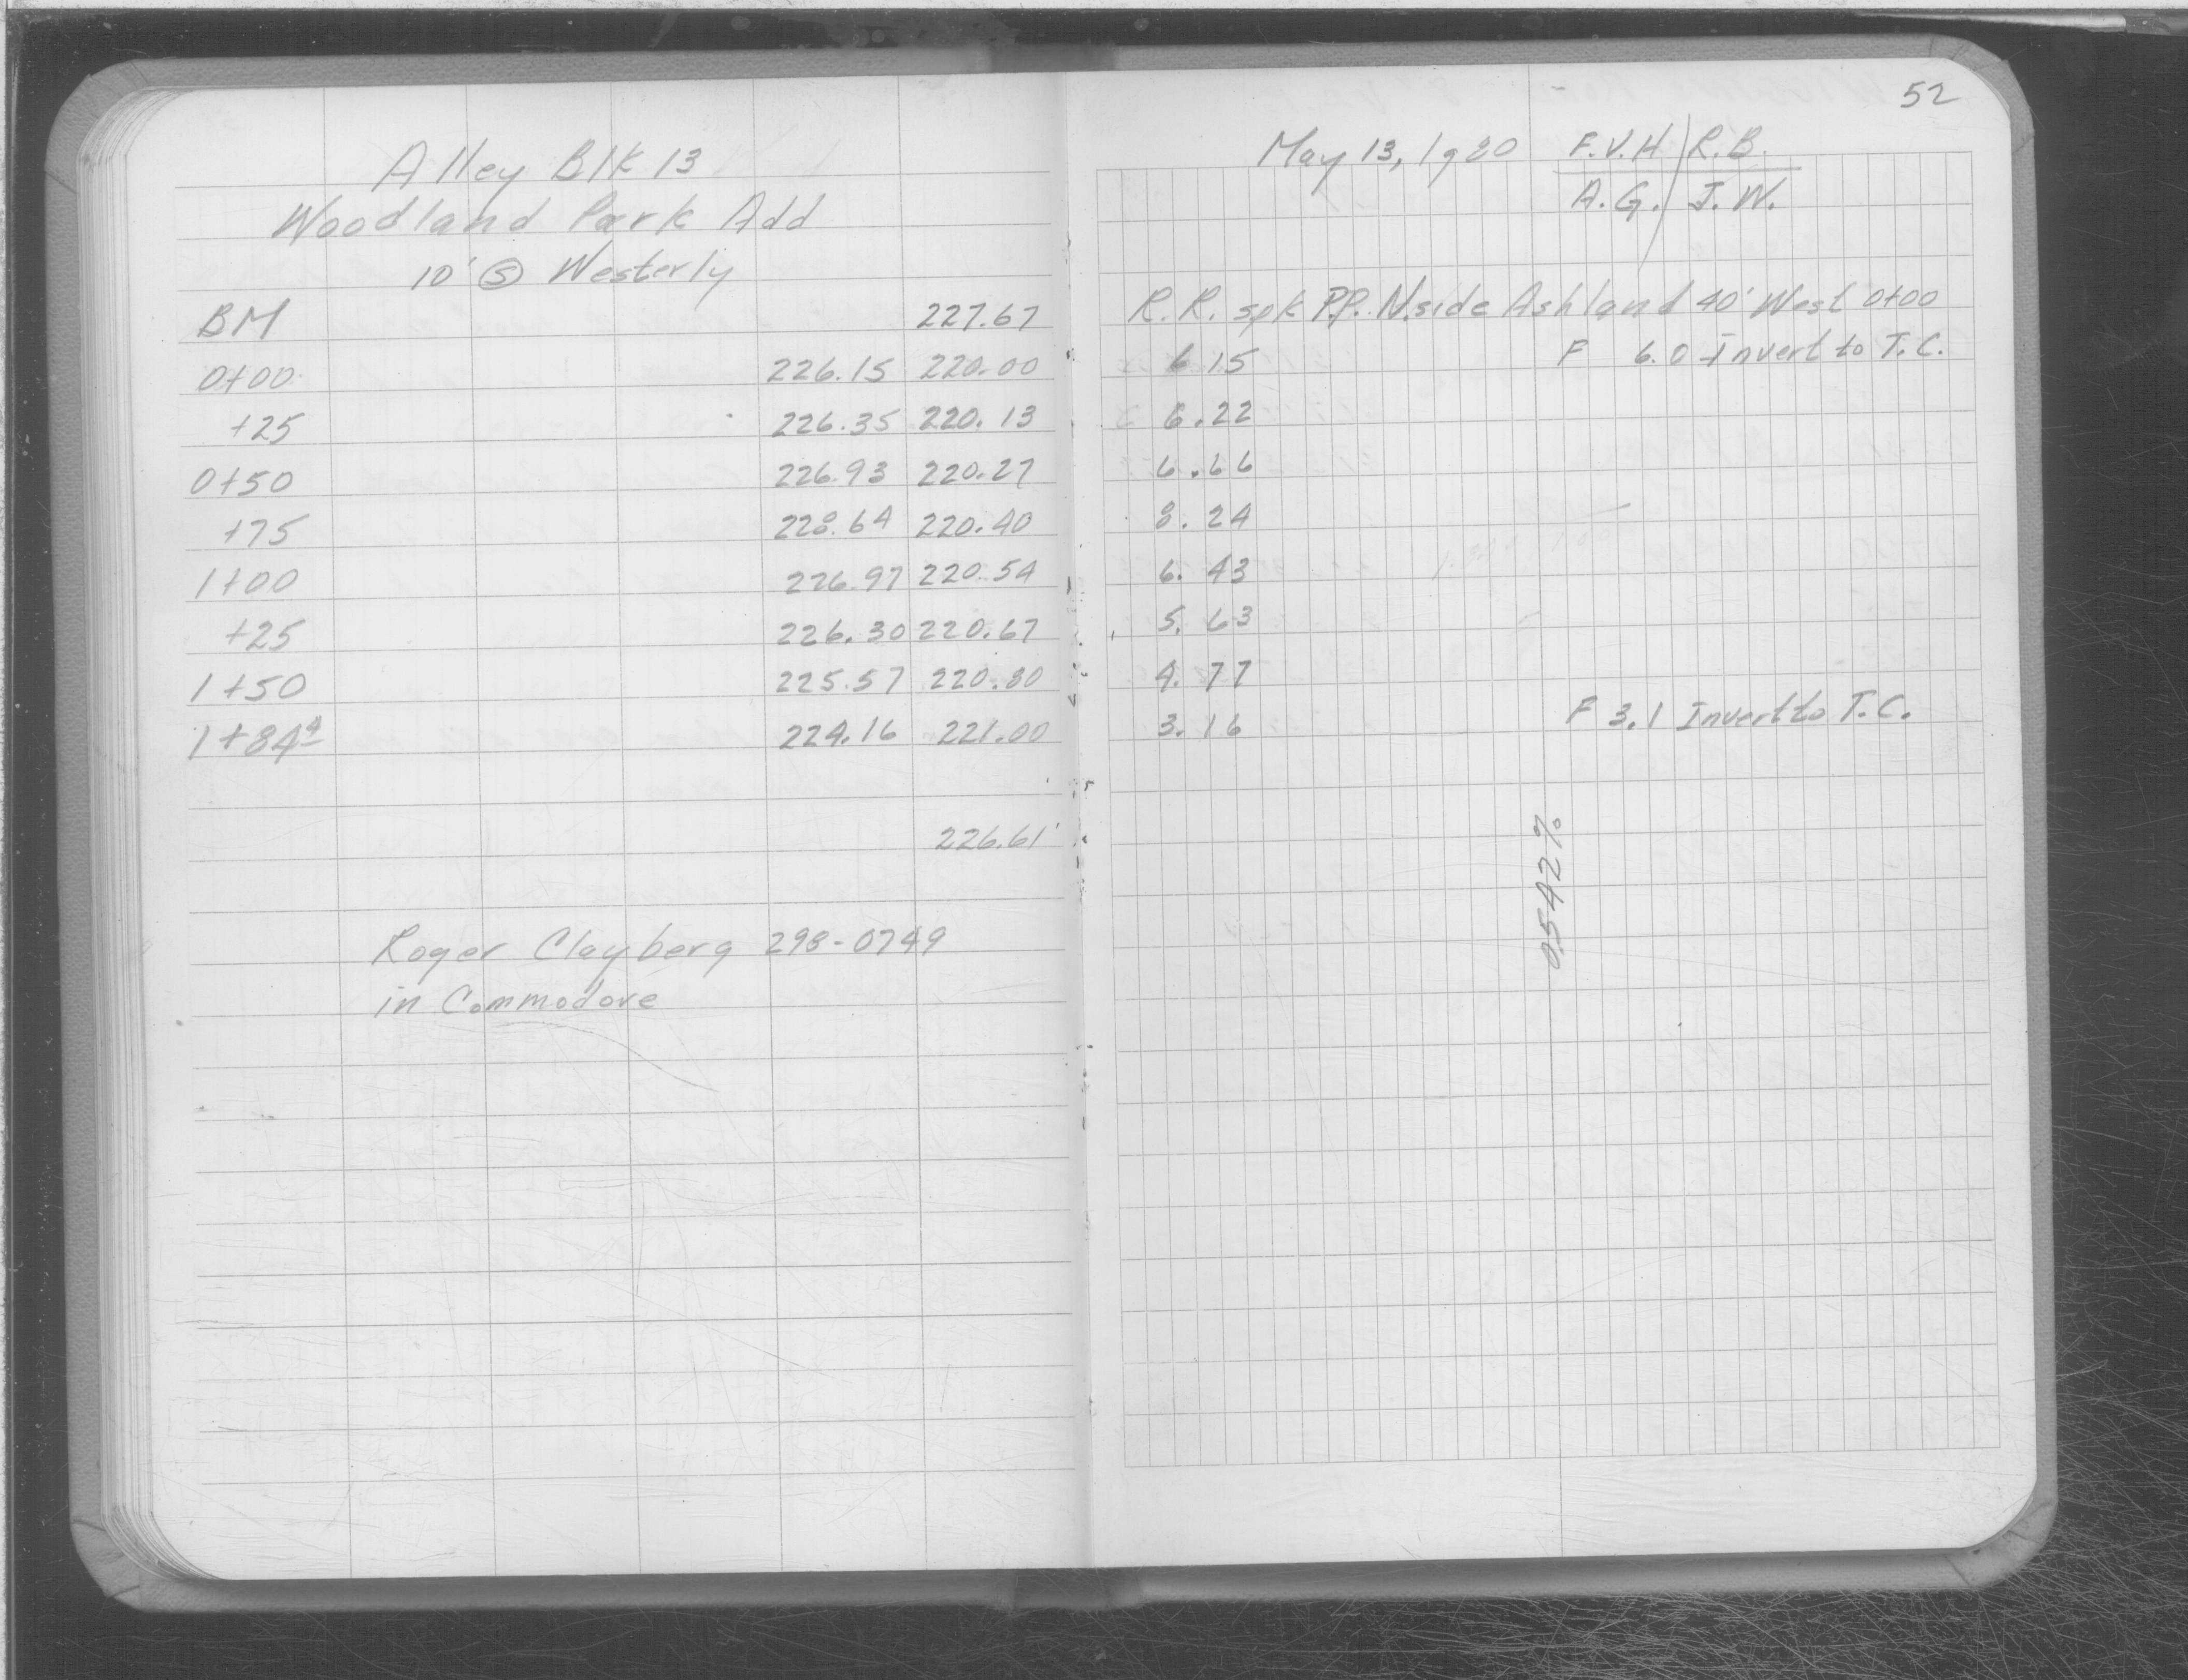 Alley Blk 13
Woodland Park Add
10' Ⓢ Westerly
BM 227.67
0+00 226.15 220.00
+25 226.35 220.13
0+50 226.93 220.27
+75 228.64 220.40
1+00 226.97 220.54
+25 226.30 220.67
1+50 225.57 220.80
1+84⁴ 224.16 221.00
226.61'
Roger Clayberg 298-0749
in Commodore
52
May 13, 1920 F.V.H R.B.
A.G. J.W.
R.R. spk P.P. N.side Ashland 40' West 0+00
6 15 F 6.0 Invert to T.C.
C 6.22
6.66
8.24
6.43
5.63
4.77
3.16 F 3.1 Invert to T.C.
0.542%